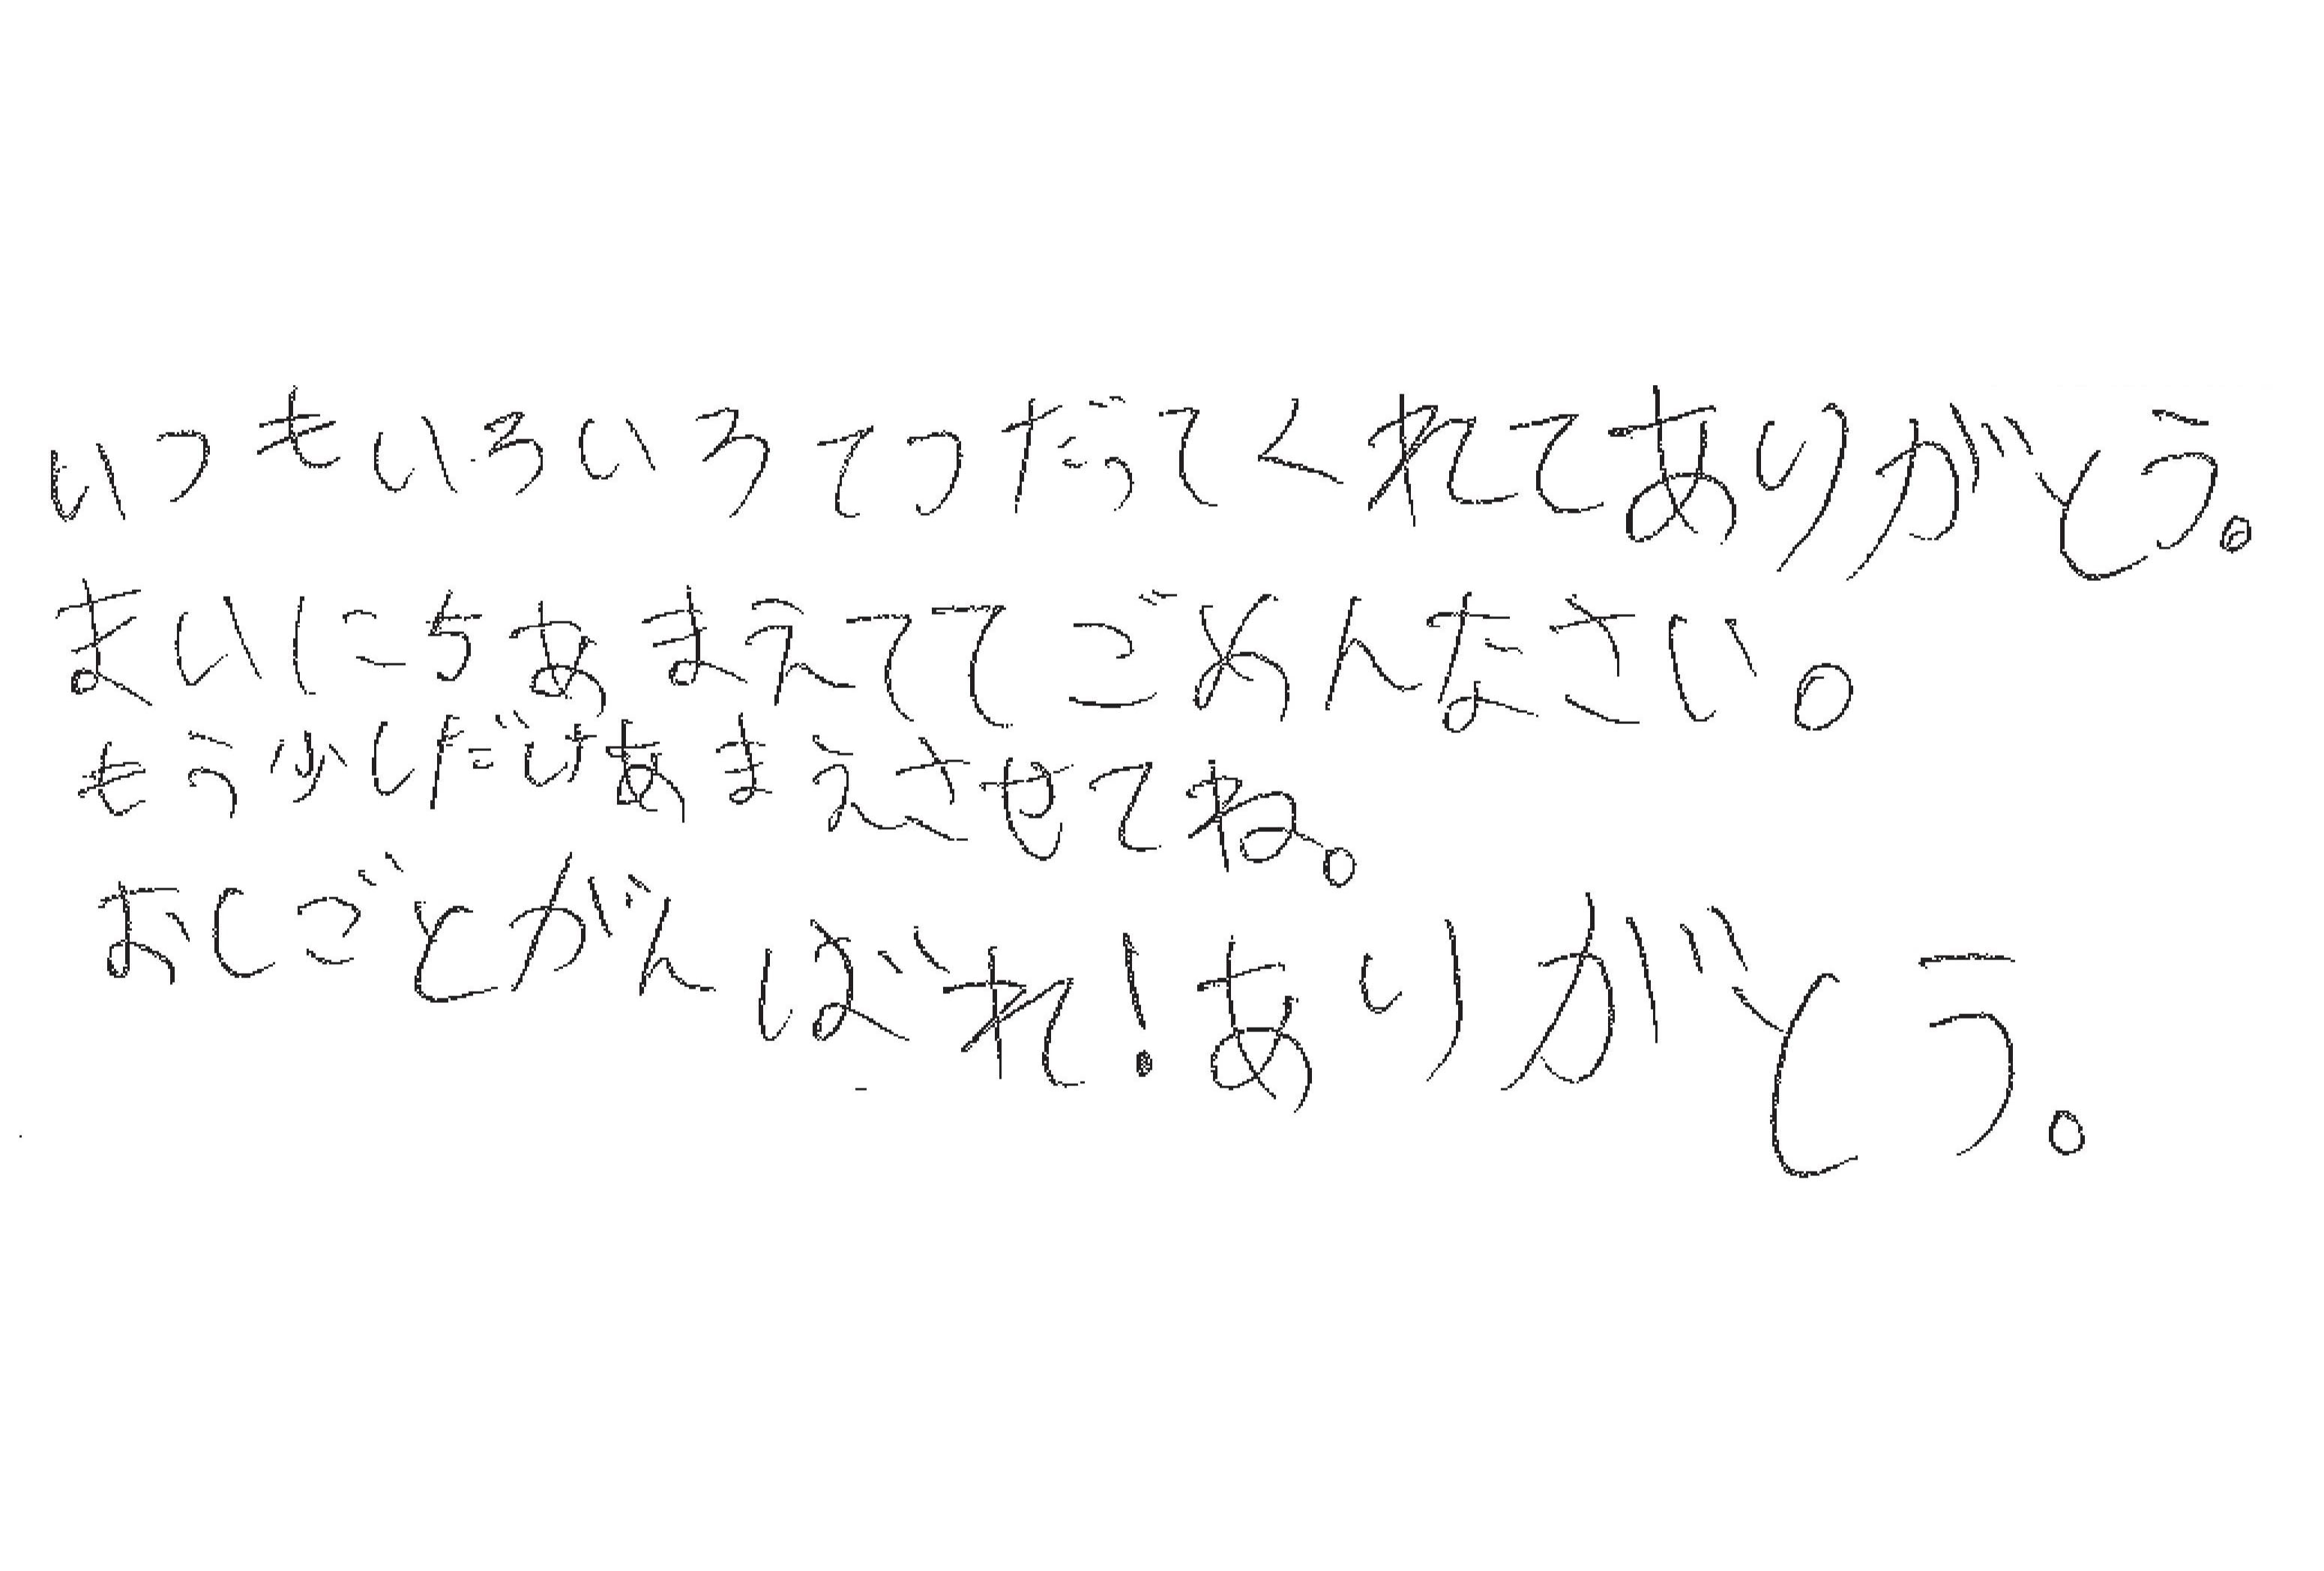 いつもいろいろてつだってくれてありがとう。
まいにちあまえててごめんなさい。
もう少しだけあまえさせてね。
おしごとがんばれ！ありがとう。